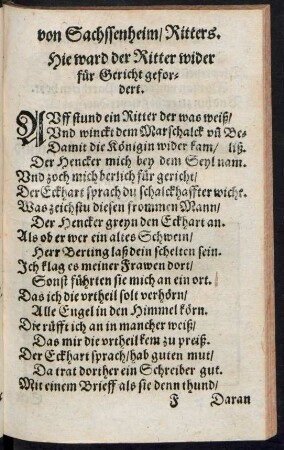 von Sachssenheim/ Ritters.
Hie ward der Ritter wider
für Gericht gefor-
dert.
AUff stund ein Ritter der was weiß/
Vnd winckt dem Marschalck vñ Be-
Damit die Königin wider kam/ liß.
Der Hencker mich bey dem Seyl nam.
Vnd zoch mich berlich für gericht/
Der Eckhart sprach du schalckhaffter wicht.
Was zeichstu diesen frommen Mann/
Der Hencker greyn den Eckhart an.
Als ob er wer ein altes Schwein/
Herr Berting laß dein schelten sein.
Ich klag es meiner Frawen dort/
Sonst führten sie mich an ein ort.
Das ich die vrtheil solt verhörn/
Alle Engel in den Himmel körn.
Die rüfft ich an in mancher weiß/
Das mir die vrtheil kem zu preiß.
Der Eckhart sprach/ hab guten mut/
Da trat dorther ein Schreiber gut.
Mit einem Brieff als sie denn thund/
F Daran